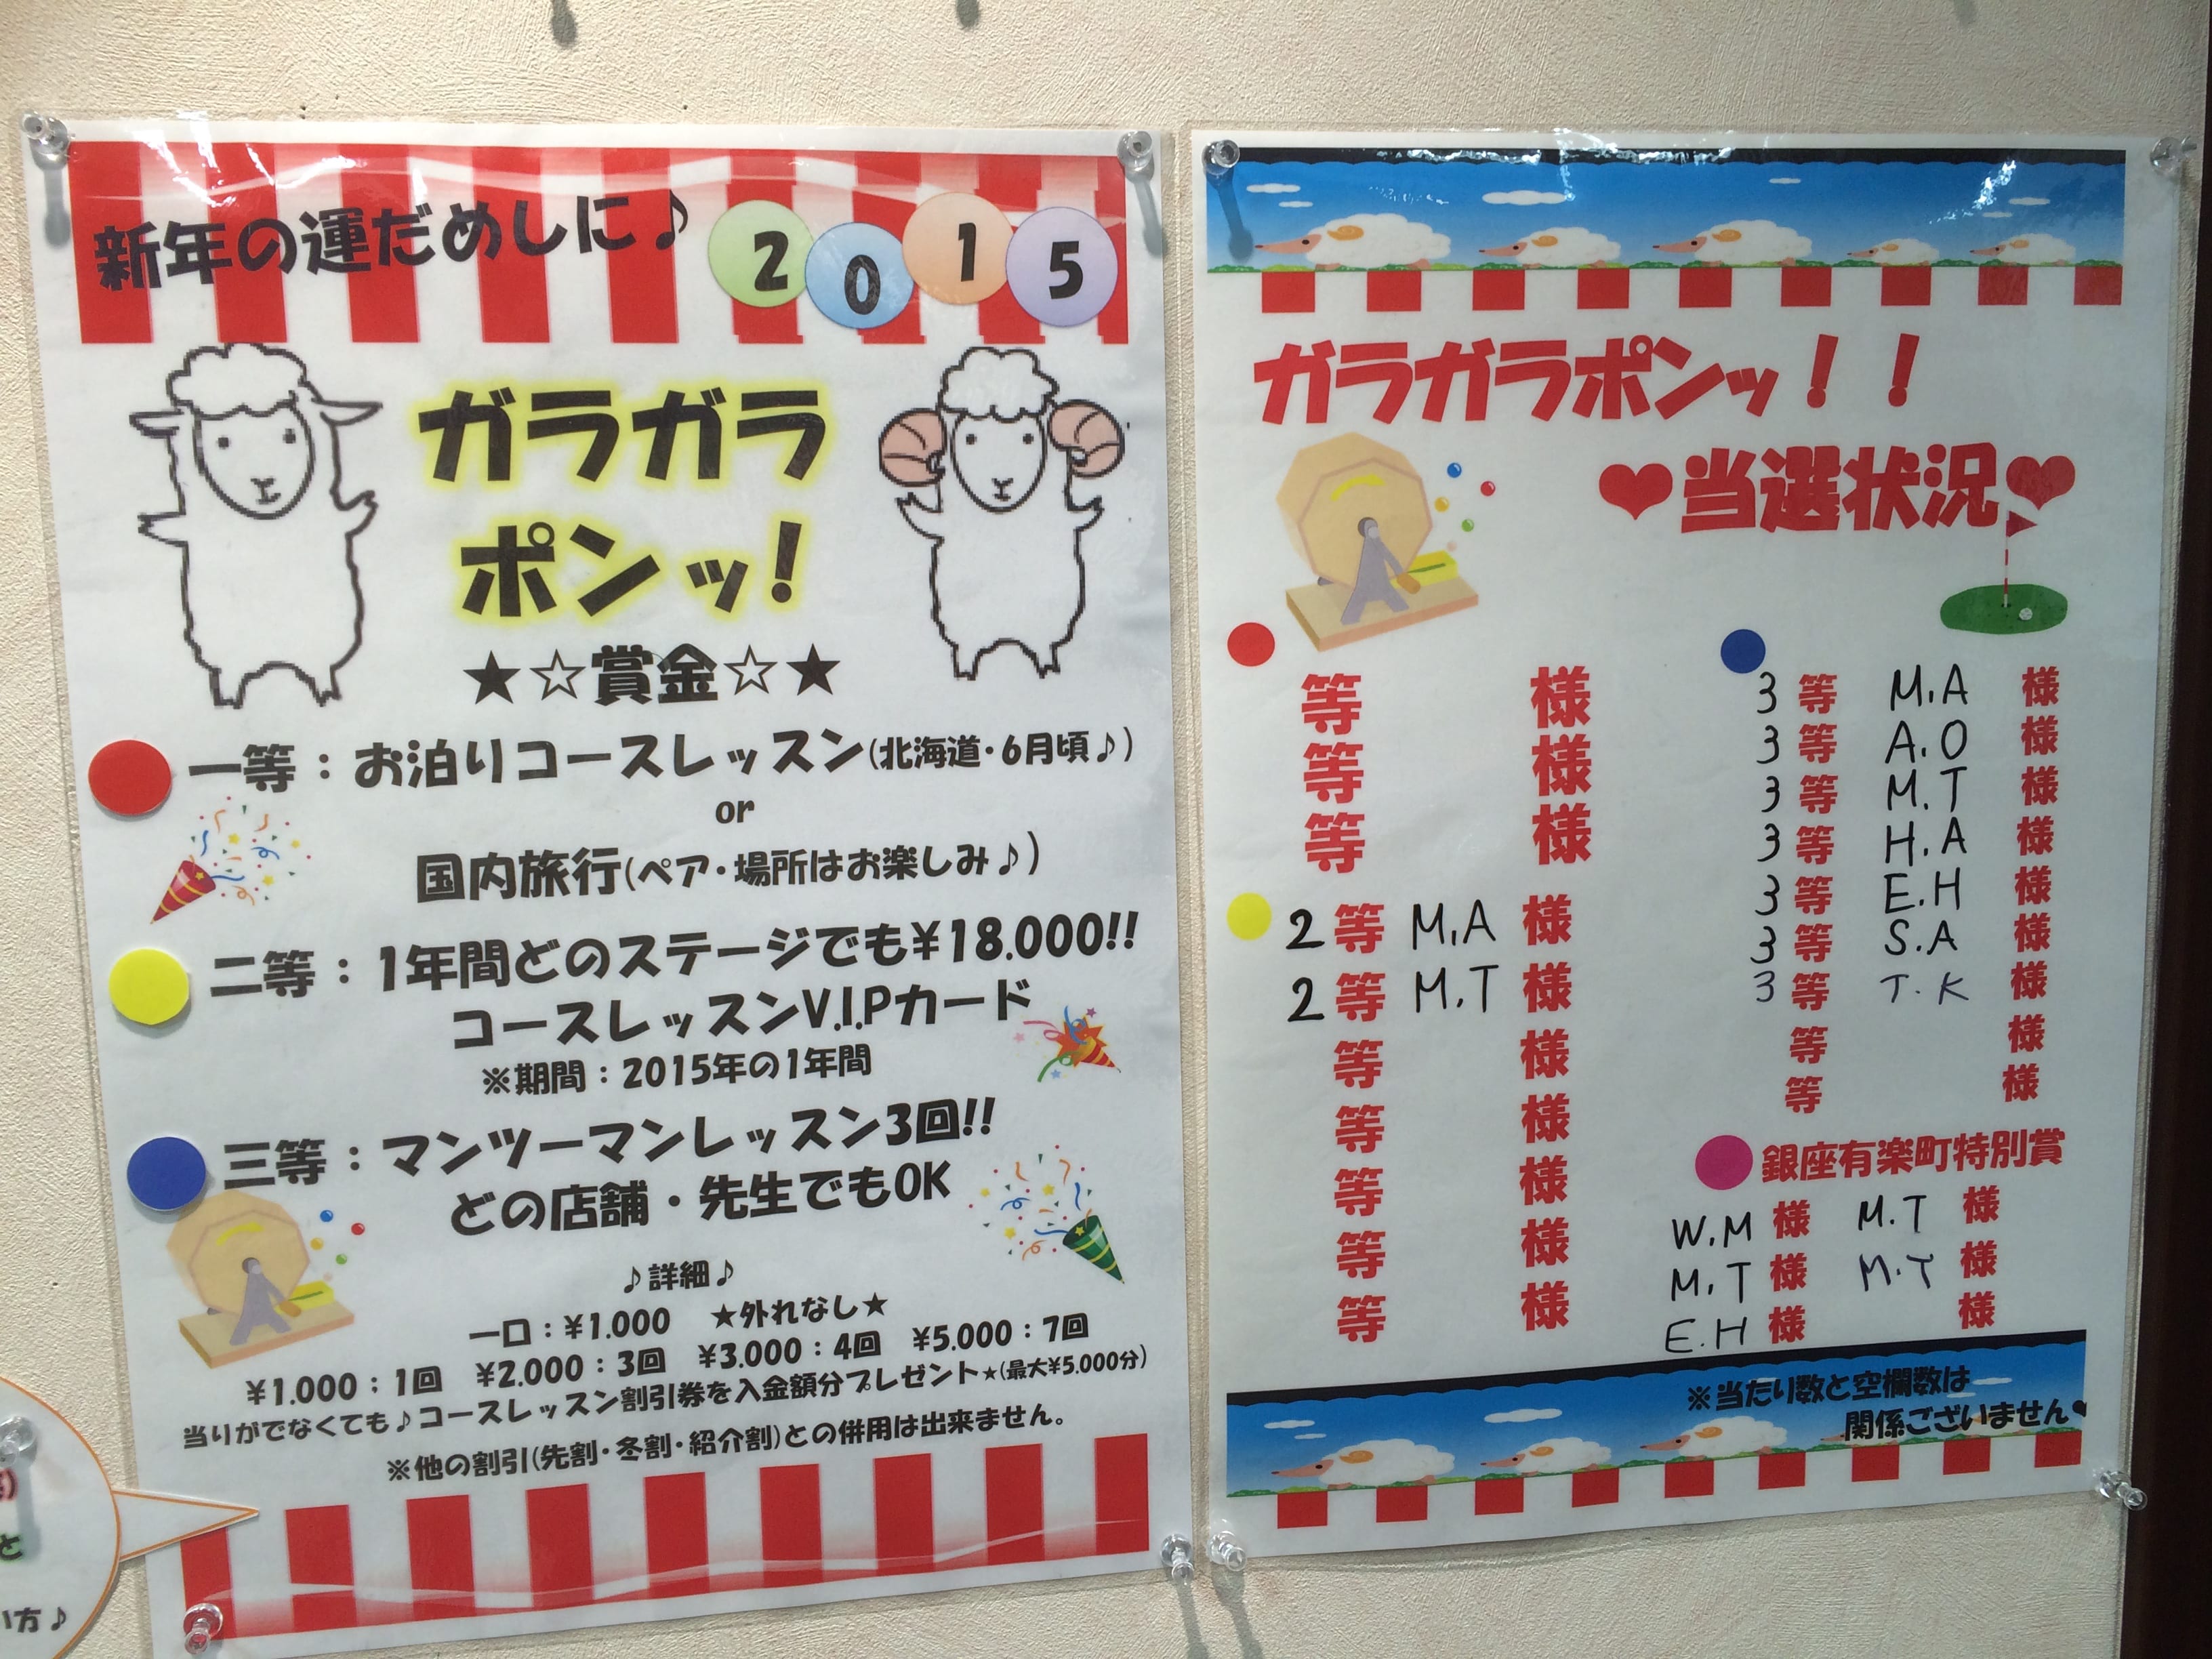 新年の運だめしに♪ 2015
ガラガラ
ポンッ!
★☆賞金☆★
一等：お泊りコースレッスン(北海道・6月頃♪)
or
国内旅行(ペア・場所はお楽しみ♪)
二等：1年間どのステージでも¥18.000!!
コースレッスンV.I.Pカード
※期間：2015年の1年間
三等：マンツーマンレッスン3回!!
どの店舗・先生でもOK
♪詳細♪
一口：¥1.000 ★外れなし★
¥1.000：1回 ¥2.000：3回 ¥3.000：4回 ¥5.000：7回
当りがでなくても♪コースレッスン割引券を入金額分プレゼント★(最大¥5.000分)
※他の割引(先割・冬割・紹介割)との併用は出来ません。
と
い方♪
ガラガラポンッ！！
❤当選状況❤
等 様
等 様
等 様
2等 M.A 様
2等 M.T 様
等 様
等 様
等 様
等 様
等 様
3等 M.A 様
3等 A.O 様
3等 M.T 様
3等 H.A 様
3等 E.H 様
3等 S.A 様
3等 T.K 様
等 様
等 様
銀座有楽町特別賞
W.M 様 M.T 様
M.T 様 M.Y 様
E.H 様 様
※当たり数と空欄数は
関係ございません